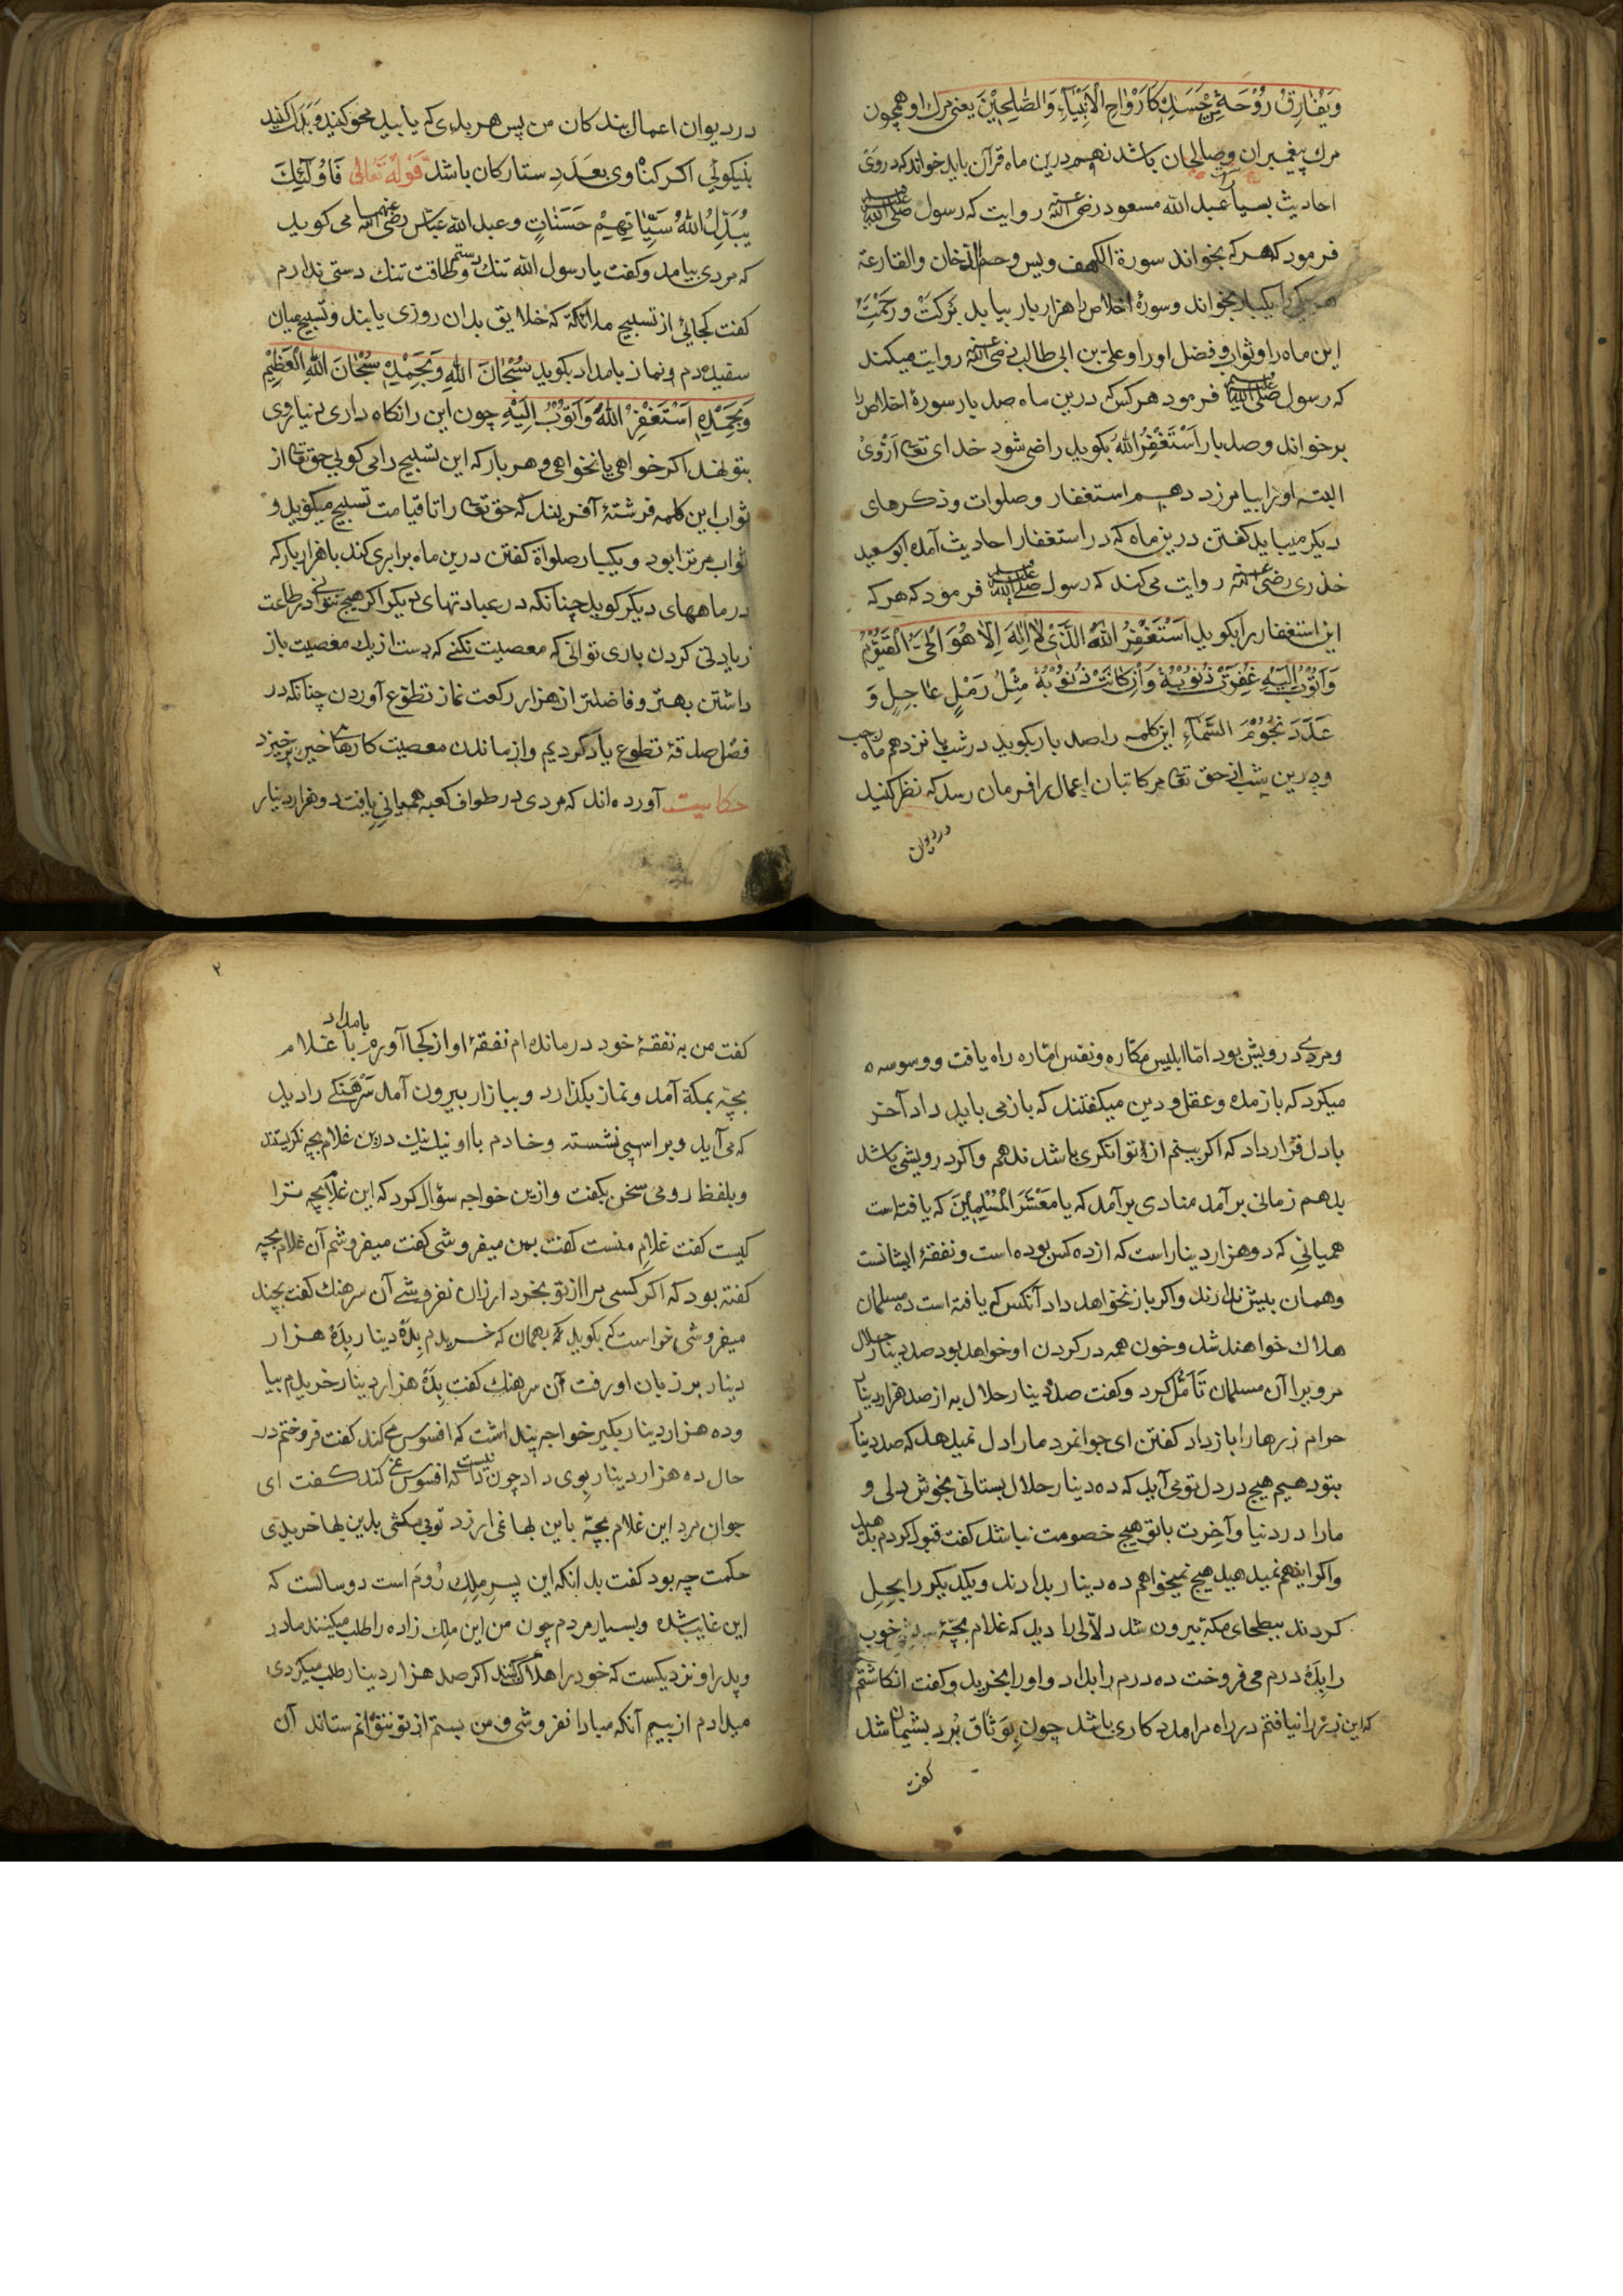 وَیُفٰارِقُ رُوْحَهُ مِنْ جَسَدِهٖ کَاَرْوٰاحِ الْاَنْبِیٰآءِ وَالصّٰلِحِیْنَ یعنی مرك او همچون
مرك پیغمبران وصالحان باشد نهم درین ماه قرآن باید خواند که در وی
احادیث بسیار عبد الله مسعود رضی الله عنه روایت که رسول صلی الله علیه وسلم
فرمود که هر که بخواند سورة الکهف ویس وحم الدّخان والقارعة
هر یکی را یکبار بخواند وسورهٔ اخلاص را هزار بار بیابد بَرَکَتْ ورَحْمَتِ
این ماه را وثواب وفضل اورا وعلی بن ابی طالب رضی الله عنه روایت میکند
که رسول صلی الله علیه وسلم فرمود هر کس که درین ماه صد بار سورهٔ اخلاص را
برخواند وصد بار اَسْتَغْفِرُ اللّٰهَ بکوید راضی شود خدای تعالی اَزْوَیْ
البته اورا بیامرزد دهم استغفار وصلوات وذکرهای
دیکر میباید کفتن درین ماه که در استغفار احادیث آمده ابو سعید
خذری رضی الله عنه روایت می کند که رسول صلی الله علیه وسلم فرمود که هر که
این استغفار را بکوید اَسْتَغْفِرُ اللّٰهَ الَّذِیْ لٰا اِلٰهَ اِلّٰا هُوَ الْحَیُّ الْقَیُّوْمُ
وَاَتُوْبُ اِلَیْهِ غُفِرَتْ ذُنُوْبُهٗ وَاِنْ کٰانَتْ ذُنُوْبُهٗ مِثْلُ رَمْلٍ عٰاجِلٍ وَ
عَدَدَ نُجُوْمَ السَّمٰآءِ این کلمه را صد بار بکوید در شب پانزدهم ماه رجب
ودرین شب از حق تعالی مر کاتبان اعمال را فرمان رسد که نظر کنید
در دیوان
در دیوان اعمال بندکان من پس هر بدی که یابید محو کنید وَبَدَل کنید
بنیکوئی اکر کناه وی بعَدَدِ ستارکان باشد قَوْلُهُ تَعٰالٰی فَاُوْلٰئِكَ
یُبَدِّلُ اللّٰهُ سَیِّاٰتِهِمْ حَسَنٰاتٍ وعبد الله عبّاس رضی الله عنهما می کوید
که مردی بیامد وکفت یا رسول الله تنك دستم وطاقت تنك دستی ندارم
کفت کجائی از تسبیح ملائکة که خلایق بدان روزی یابند وتسبیح میان
سفیده دم ونماز بامداد بکوید سُبْحٰانَ اللّٰهِ وَبِحَمْدِهٖ سُبْحٰانَ اللّٰهِ الْعَظِیْمِ
وَبِحَمْدِهٖ اَسْتَغْفِرُ اللّٰهَ وَاَتُوْبُ اِلَیْهِ چون این را نکاه داری دنیا روی
بتو نهد اکر خواهی یا نخواهی وهر بار که این تسبیح را می کویی حق تعالی از
ثواب این کلمه فرشتهٔ آفریند که حق تعالی را تا قیامت تسبیح میکوید و
ثواب مر ترا بود ویکبار صلواة کفتن درین ماه برابری کند با هزار بار که
در ماههای دیکر کوید چنانکه در عبادتهای دیکر اکر هیچ نتوانی در طاعت
زیادتی کردن باری توانی که معصیت نکنی که دست از یك معصیت باز
داشتن بهتر وفاضلتر از هزار رکعت نماز تطوّع آوردن چنانکه در
فضل صدقهٔ تطوع یاد کردیم واز ماندن معصیت کارهای خیر برخیزد
حکایت آورده اند که مردی در طواف کعبه همیانی یافت دو هزار دینار
ومردی درویش بود امّا ابلیس مکّاره ونفس امّاره راه یافت ووسوسه
میکرد که باز مده وعقل ودین میکفتند که باز می باید داد آخر
با دل قرار داد که اکر بینم از آن توانکری باشد ندهم واکر درویشی باشد
بدهم زمانی برآمد منادی برآمد که یا مَعْشَرَ الْمُسْلِمِیْنَ که یافته است
همیانی که دو هزار دینار است که از ده کس بوده است ونفقهٔ ایشانست
وهمان بیش ندارند واکر باز نخواهد داد آنکس که یافته است ده مسلمان
هلاك خواهند شد وخون همه در کردن او خواهد بود صد دینار حلال
مرویرا آن مسلمان تَأَمُّل کرد وکفت صد دینار حلال به از صد هزار دینار
حرام زرها را باز داد کفتن ای جوانمرد مارا دل نمیدهد که صد دینار
بتو دهیم هیچ در دل تو می آید که ده دینار حلال بستانی بخوش دلی و
مارا در دنیا وآخِرت با تو هیچ خصومت نباشد کفت قبول کردم بدهید
واکر این هم نمیدهید هیچ نمیخواهم ده دینار بدادند ویکدیکر را بحِلِ
کردند ببطحای مکّه بیرون شد دلّالی را دید که غلام بچّهٔ خوب
را بدَهْ درم می فروخت ده درم را بداد واورا بخرید وکفت انکاشتم
که این زر را نیافتم در راه مرا مددکاری باشد چون بوَثاق بُرد پشیمان شد
کفت
۲
کفت من به نفقهٔ خود درمانده ام نفقهٔ او از کجا آورم بامداد با غلام
بچّه بمکّة آمد ونماز بکذارد وببازار بیرون آمد سَرْهَنکی را دید
که می آید وبر اسپی نشسته وخادم با او نیك نیك درین غلام بچه نکریستند
وبلفظ رومی سخن بکفت وازین خواجه سؤال کرد که این غلام بچه ترا
کیست کفت غلامِ منست کفت بمن میفروشی کفت میفروشم آن غلام بچه
کفته بود که اکر کسی مرا از تو بخرد ارزان نفروشی آن سرهنك کفت بچند
میفروشی خواست که بکوید که بهمان که خریدم بِدَهْ دینار بِدَهْ هزار
دینار بر زبان او رفت آن سرهنك کفت بِدَهْ هزار دینار خریدم بیا
وده هزار دینار بکیر خواجه پنداشت که افسوس می کند کفت فروختم در
حال ده هزار دینار بوی داد چون دانست که افسوس نمی کند کفت ای
جوان مرد این غلام بچّه باین بها نمی ارزد تو می مکشی بدین بها خریدی
حکمت چه بود کفت بدانکه این پسرِ مِلِكِ رُومَ است دو سالست که
این غایب شده وبسیار مردم چون من این ملك زاده را طلب میکنند مادر
وپدر او نزدیکست که خود را هلاك کنند اکر صد هزار دینار طلب میکردی
میدادم از بیم آنکه مبادا نفروشی ومن بستم از تو نتوانم ستاند آن